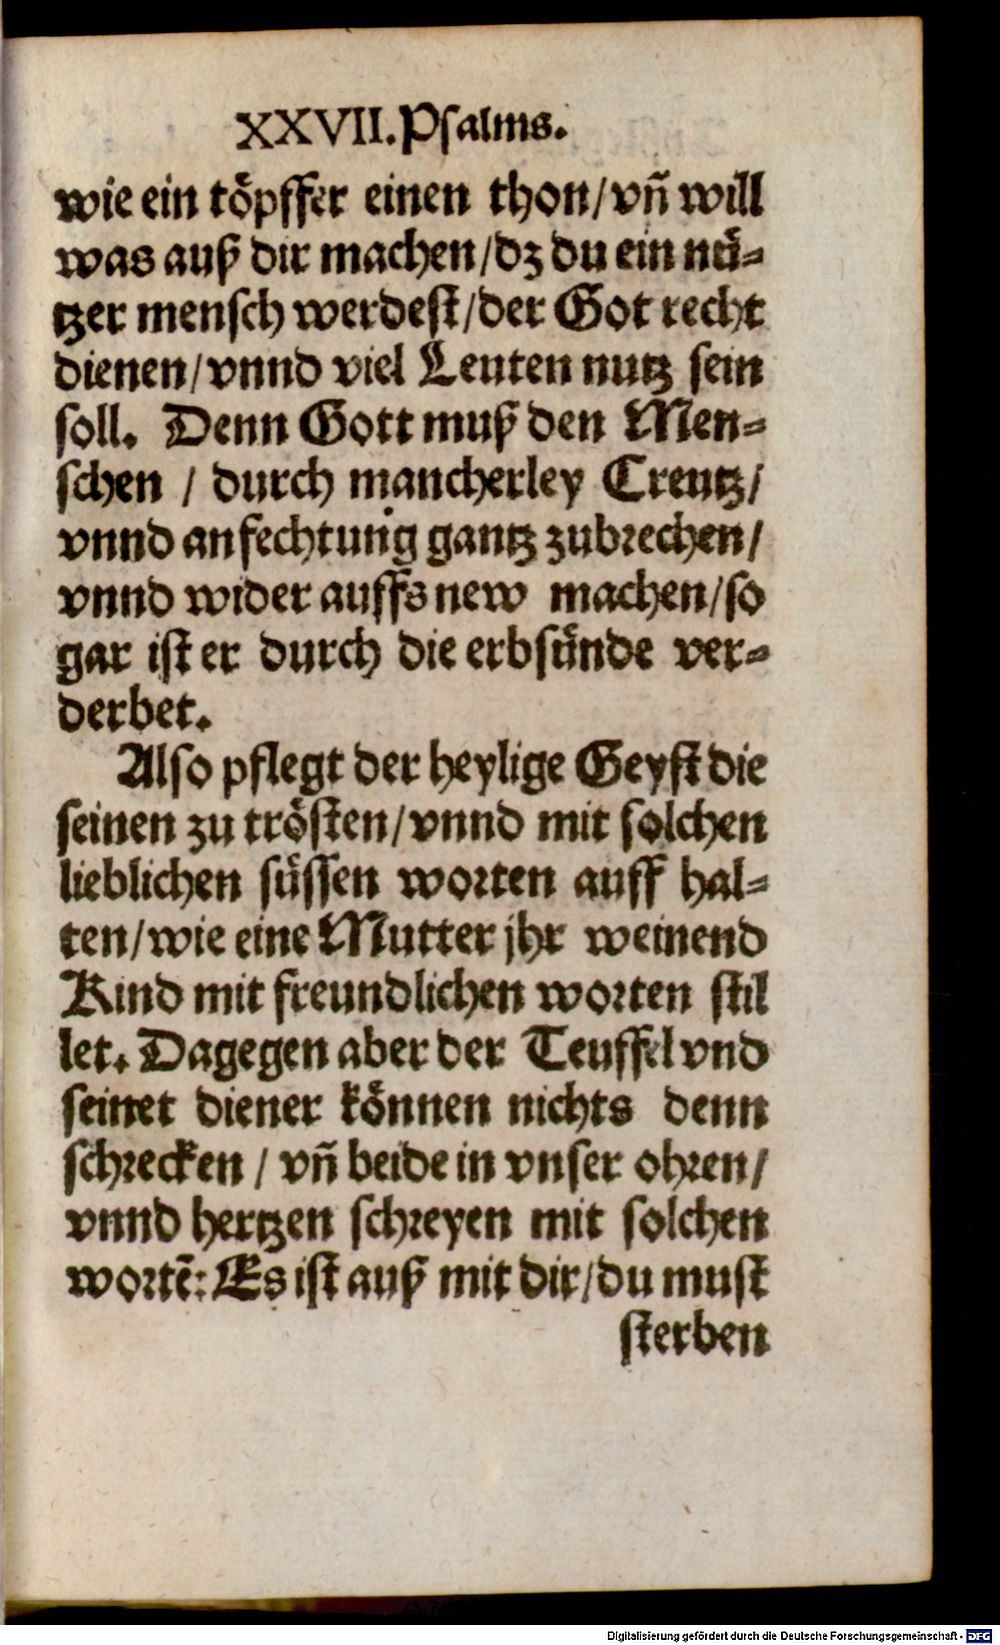 XXVII. Psalms.
wie ein töpffer einen thon/vñ will
was auß dir machen/dz du ein nü-
tzer mensch werdest/der Got recht
dienen/vnnd viel Leuten nutz sein
soll. Denn Gott muß den Men-
schen / durch mancherley Creutz/
vnnd anfechtung gantz zubrechen/
vnnd wider auffs new machen/so
gar ist er durch die erbsünde ver-
derbet.
Also pflegt der heylige Geyst die
seinen zu trösten/vnnd mit solchen
lieblichen süssen worten auff hal-
ten/wie eine Mutter jhr weinend
Kind mit freundlichen worten stil
let. Dagegen aber der Teuffel vnd
seinet diener können nichts denn
schrecken / vñ beide in vnser ohren/
vnnd hertzen schreyen mit solchen
wortē: Es ist auß mit dir/du must
sterben
Digitalisierung gefördert durch die Deutsche Forschungsgemeinschaft - DFG